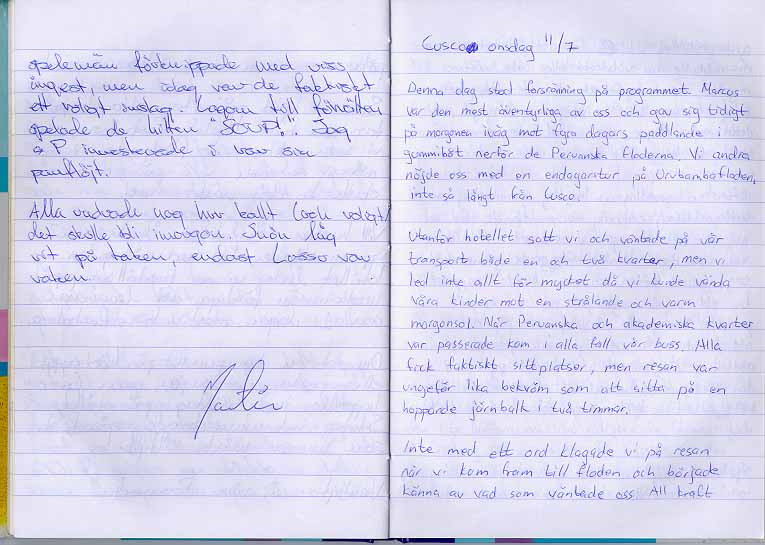 spelemän förknippade med viss
ångest, men idag var de faktiskt
ett roligt inslag. Lagom till
spelade de hiten "SOUP!". Jag
& P investerade i var sin
panflöjt.
Alla undrade nog hur kallt (och roligt)
det skulle bli imorgon. Snön låg
vit på taken, endast Lasso var
vaken.
Martin
Cusco onsdag 11/7
Denna dag stod forsränning på programmet. Marcus
var den mest äventyrliga av oss och gav sig tidigt
på morgonen iväg mot fyra dagars paddlande i
gummibåt nerför de Peruanska floderna. Vi andra
nöjde oss med en endagarstur på Urubambafloden,
inte så långt från Cusco.
Utanför hotellet satt vi och väntade på vår
transport både en och två kvarter, men vi
led inte allt för mycket då vi kunde vända
våra kinder mot en strålande och varm
morgonsol. När Peruanska och akademiska kvarter
var passerade kom i alla fall vår buss. Alla
fick faktiskt sittplatser, men resan var
ungefär lika bekväm som att sitta på en
hoppande järnbalk i två timmar.
Inte med ett ord klagade vi på resan
när vi kom fram till floden och började
känna av vad som väntade oss. All kraft